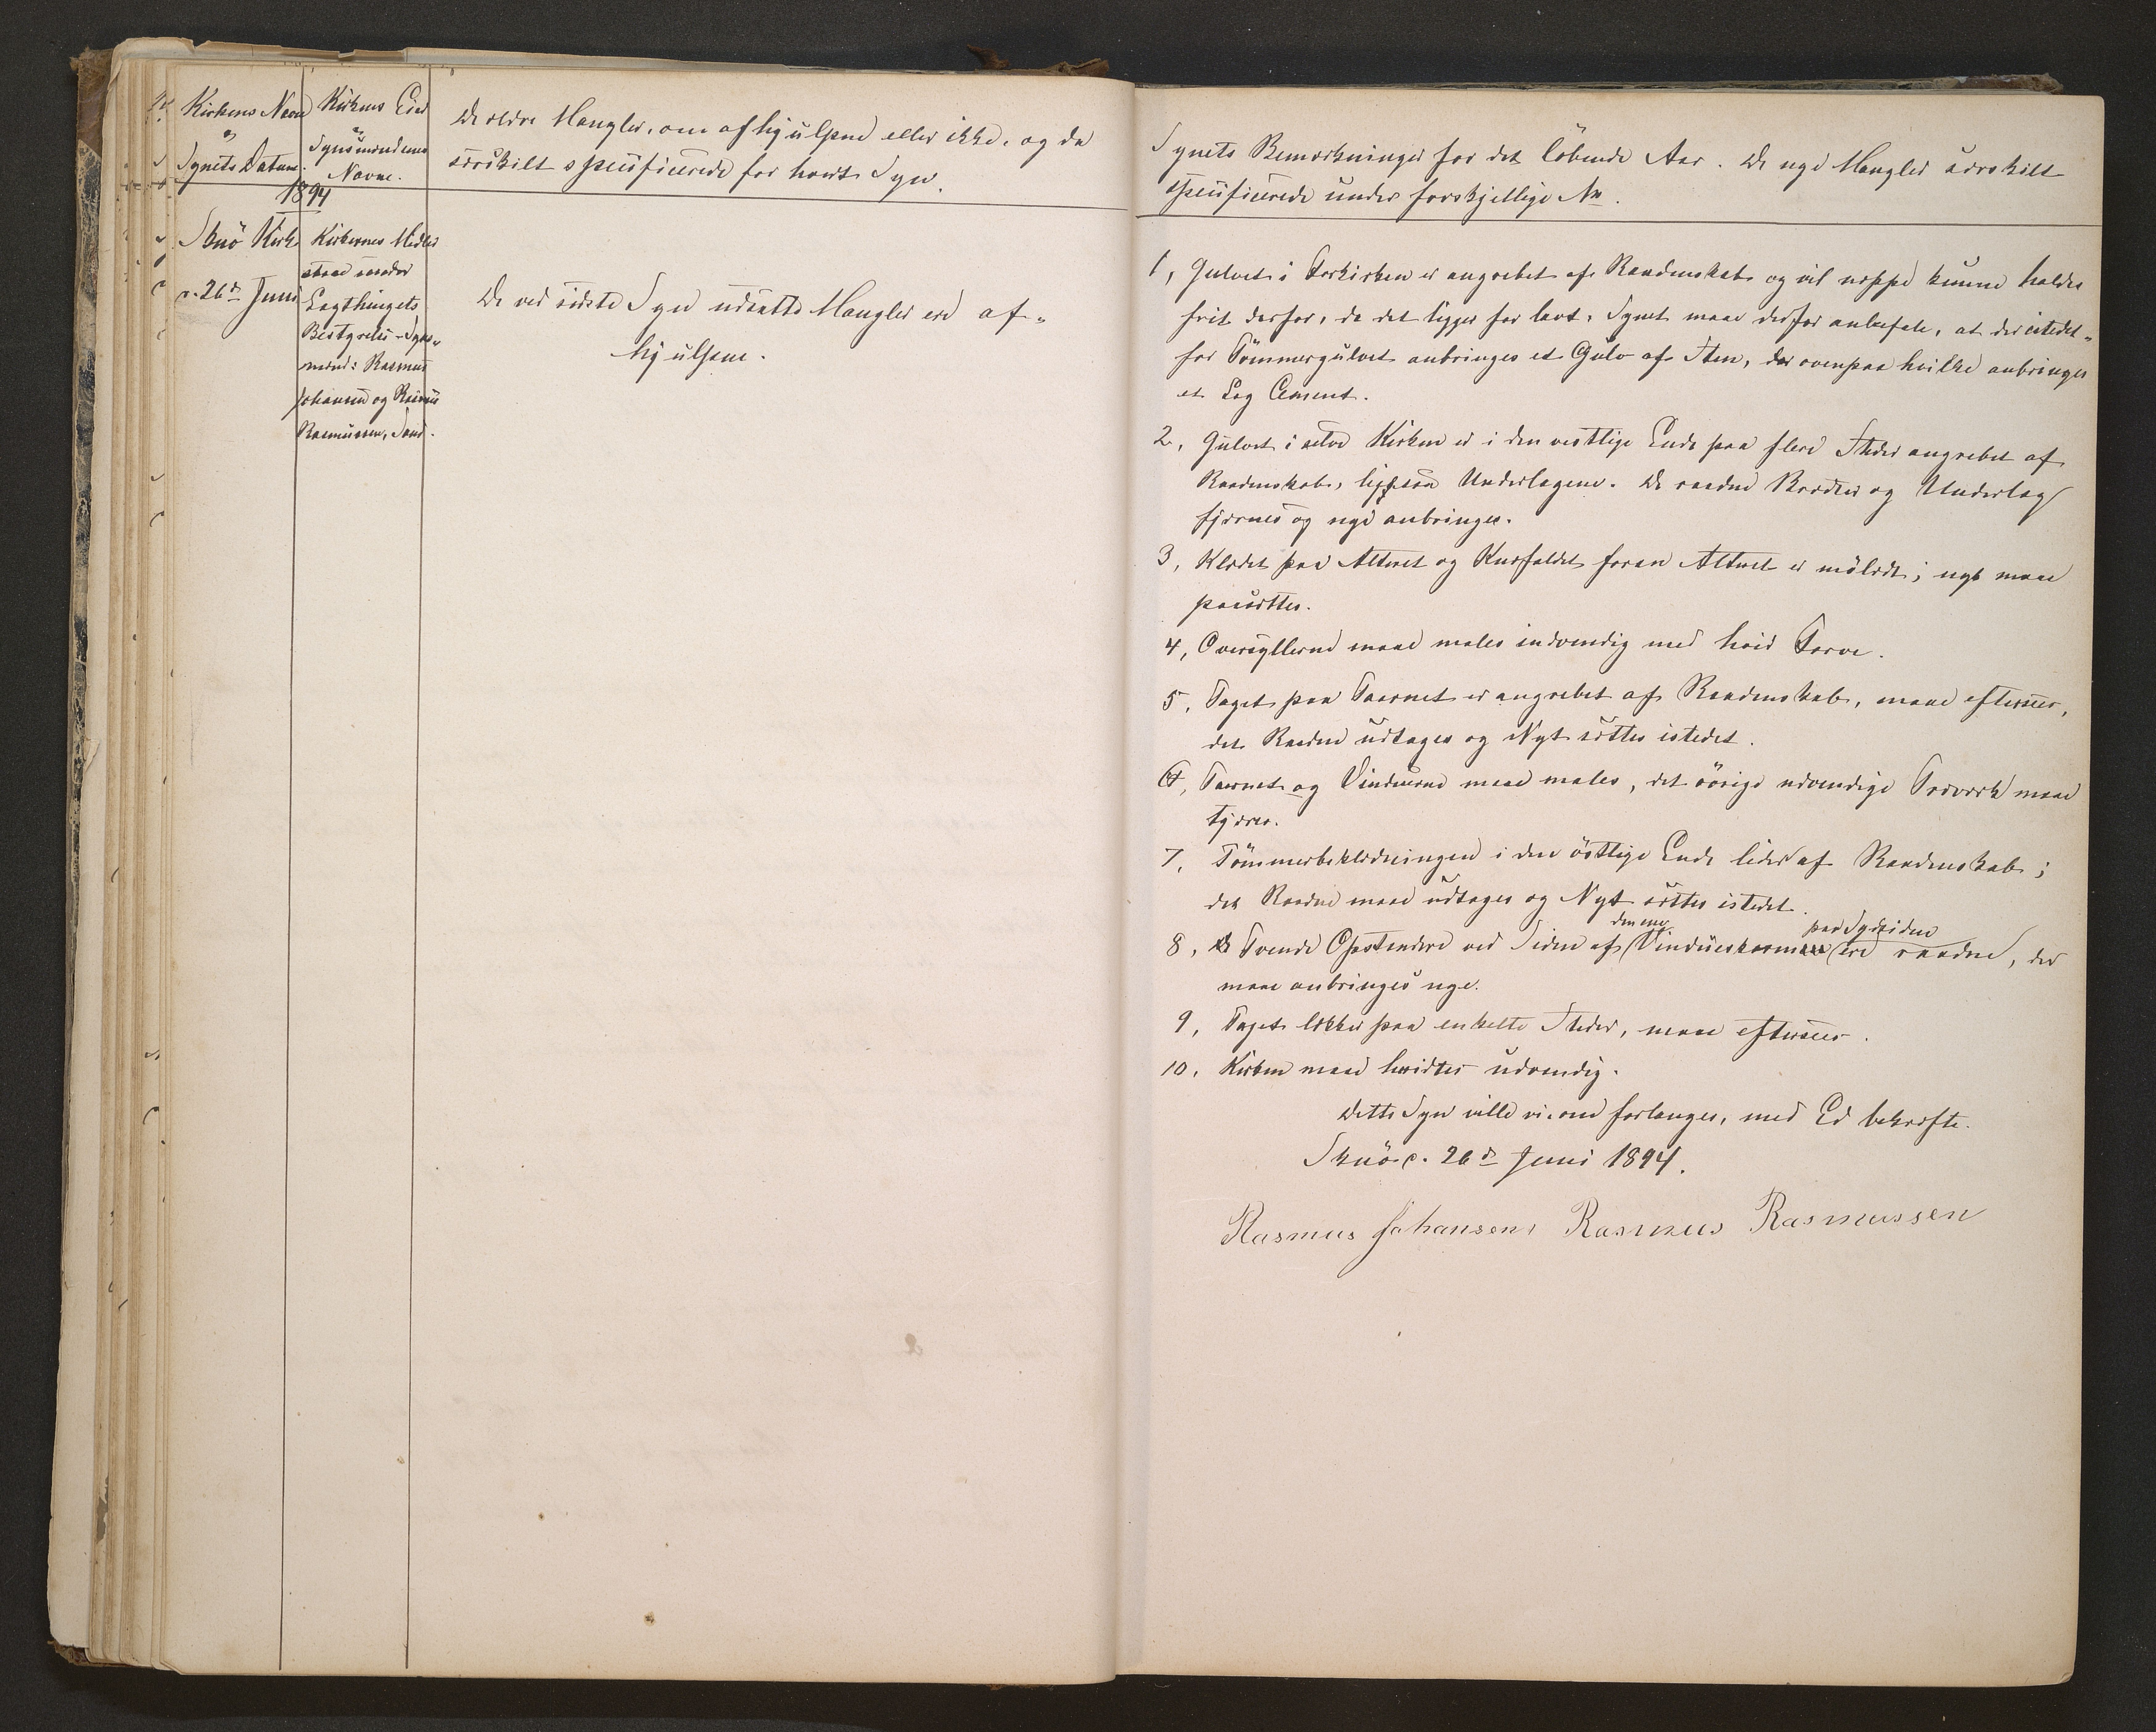 Kirkens Navn
og
Synets Datum.
Kirkens Eier
og
Synsmændenes
Navne.
De ældre Mangler, om afhjulpne eller ikke, og da
særskilt specificerede for hvert Syn.
1894
Skuö Kirke
d. 26de Juni
Kirkernes Midler
staae under
Lagthingets
Bestyrelse - Syns-
mænd: Rasmus
Johansen og Rasmus
Rasmussen, Sand.
De ved sidste Syn udsatte Mangler ere af-
hjulpne.
Synets Bemærkninger for det löbende Aar. De nye Mangler særskilt
specificerede under forskjellige No.
1, Gulvet i Forkirken er angrebet af Raadenskab og vil neppe kunne holdes
frit derfor, da det ligger for lavt. Synet maae derfor anbefale, at der istedet-
for Tömmergulvet anbringes et Gulv af Sten, der ovenpaa hvilke anbringes
et Lag Cement.
2, Gulvet i selve Kirken er i den vestlige Ende paa flere Steder angrebet af
Raadenskab, ligesaa Underlagene. De raadne Brædder og Underlag
fjernes og nye anbringes.
3, Klædet paa Alteret og Knæfaldet foran Alteret er mölædt; nyt maae
paasættes.
4, Oversyllerne maae males indvendig med hvid Farve.
5, Taget paa Taarnet er angrebet af Raadenskab, maae eftersees,
det Raadne udtages og Nyt sættes istedet.
6, Taarnet og Vinduerne maae males, det övrige udvendige Træværk maae
tjæres.
7, Tömmerbeklædningen i den östlige Ende lider af Raadenskab;
det Raadne maae udtages og Nyt sættes istedet.
8, Tvende Opstandere ved Siden af den ene Vindueskarm paa Sydsiden ere raadne, der
maae anbringes nye.
9, Taget lækker paa enkelte Steder, maae eftersees.
10, Kirken maae hvidtes udvendig.
Dette Syn ville vi, om forlanges, med Ed bekræfte.
Skuö d. 26de Juni 1894.
Rasmus Johansen, Rasmus Rasmussen